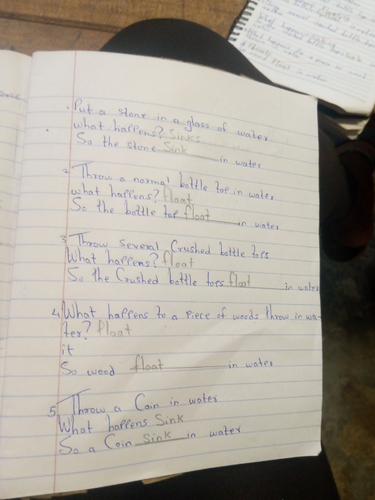 Put a stone in a glass of water
what happens? Sinks
So the stone Sink in water
2 Throw a normal bottle top in water
what happens? float
So the bottle top float in water
3 Throw several Crushed bottle tops
What happens? float
So the Crushed bottle tops float in water
4 What happens to a piece of woods throw in wa-
ter? float
it
So wood float in water
5 Throw a Coin in water
What happens Sink
So a Coin Sink in water